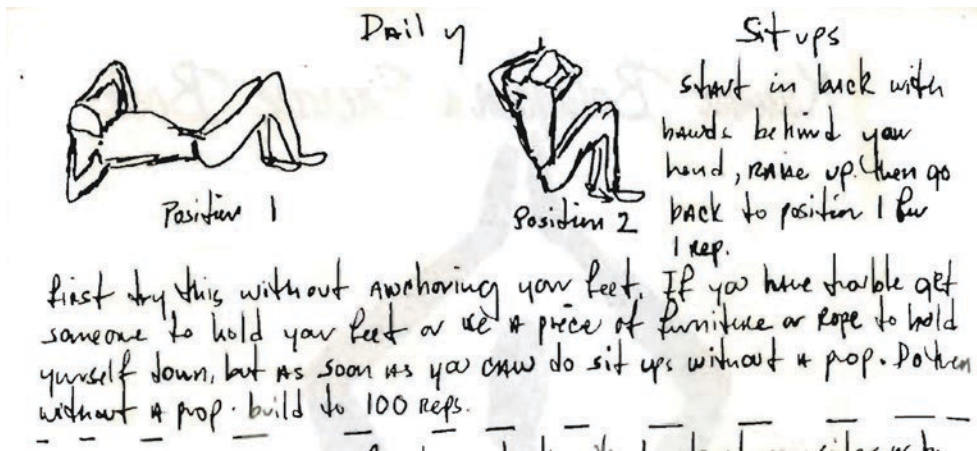 Daily
Sit ups
start in back with
hands behind your
head, raise up. then go
back to position 1 for
1 rep.
Position 1
Position 2
first try this without anchoring your feet. If you have trouble get
someone to hold your feet or use a piece of furniture or rope to hold
yurself down, but as soon as you can do sit ups without a prop. Do them
without a prop. build to 100 reps.